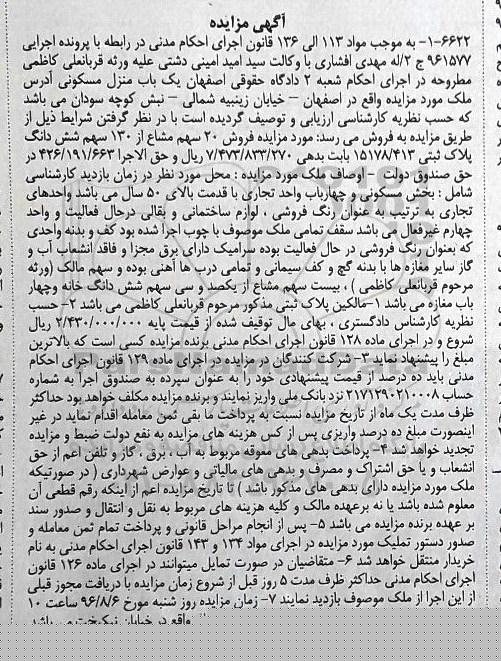 آگهی مزایده
۱-۶۶۲۲- به موجب مواد ۱۱۳ الی ۱۳۶ قانون اجرای احکام مدنی در رابطه با پرونده اجرایی
۹۶۱۵۷۷ ج ۲/له مهدی افشاری با وکالت سید امید امینی دشتی علیه ورثه قربانعلی کاظمی
مطروحه در اجرای احکام شعبه ۲ دادگاه حقوقی اصفهان یک باب منزل مسکونی آدرس
ملک مورد مزایده واقع در اصفهان – خیابان زینبیه شمالی – نبش کوچه سودان می باشد
که حسب نظریه کارشناسی ارزیابی و توصیف گردیده است با در نظر گرفتن شرایط ذیل از
طریق مزایده به فروش می رسد: مورد مزایده فروش ۲۰ سهم مشاع از ۱۳۰ سهم شش دانگ
پلاک ثبتی ۱۵۱۷۸/۴۱۳ بابت بدهی ۷/۴۷۳/۸۳۳/۲۷۰ ریال و حق الاجرا ۴۲۶/۱۹۱/۶۶۳ در
حق صندوق دولت - اوصاف ملک مورد مزایده : محل مورد نظر در زمان بازدید کارشناسی
شامل : بخش مسکونی و چهارباب واحد تجاری با قدمت بالای ۵۰ سال می باشد واحدهای
تجاری به ترتیب به عنوان رنگ فروشی ، لوازم ساختمانی و بقالی درحال فعالیت و واحد
چهارم غیرفعال می باشد سقف تمامی ملک موصوف با چوب اجرا شده بود کف و بدنه واحدی
که بعنوان رنگ فروشی در حال فعالیت بوده سرامیک دارای برق مجزا و فاقد انشعاب آب و
گاز سایر مغازه ها با بدنه گچ و کف سیمانی و تمامی درب ها آهنی بوده و سهم مالک (ورثه
مرحوم قربانعلی کاظمی ) ، بیست سهم مشاع از یکصد و سی سهم شش دانگ خانه وچهار
باب مغازه می باشد ۱-مالکین پلاک ثبتی مذکور مرحوم قربانعلی کاظمی می باشد ۲- حسب
نظریه کارشناس دادگستری ، بهای مال توقیف شده از قیمت پایه ۲/۴۳۰/۰۰۰/۰۰۰ ریال
شروع و در اجرای ماده ۱۲۸ قانون اجرای احکام مدنی برنده مزایده کسی است که بالاترین
مبلغ را پیشنهاد نماید ۳- شرکت کنندگان در مزایده در اجرای ماده ۱۲۹ قانون اجرای احکام
مدنی باید ده درصد از قیمت پیشنهادی خود را به عنوان سپرده به صندوق اجرا به شماره
حساب ۲۱۷۱۲۹۰۲۱۰۰۰۸ نزد بانک ملی واریز نمایند و برنده مزایده مکلف خواهد بود حداکثر
ظرف مدت یک ماه از تاریخ مزایده نسبت به پرداخت ما بقی ثمن معامله اقدام نماید در غیر
اینصورت مبلغ ده درصد واریزی پس از کس هزینه های مزایده به نفع دولت ضبط و مزایده
تجدید خواهد شد ۴- پرداخت بدهی های معوقه مربوط به آب ، برق ، گاز و تلفن اعم از حق
انشعاب و یا حق اشتراک و مصرف و بدهی های مالیاتی و عوارض شهرداری ( در صورتیکه
ملک مورد مزایده دارای بدهی های مذکور باشد ) تا تاریخ مزایده اعم از اینکه رقم قطعی آن
معلوم شده باشد یا نه برعهده مالک و کلیه هزینه های مربوط به نقل و انتقال و صدور سند
بر عهده برنده مزایده می باشد ۵- پس از انجام مراحل قانونی و پرداخت تمام ثمن معامله و
صدور دستور تملیک مورد مزایده در اجرای مواد ۱۳۴ و ۱۴۳ قانون اجرای احکام مدنی به نام
خریدار منتقل خواهد شد ۶- متقاضیان در صورت تمایل میتوانند در اجرای ماده ۱۲۶ قانون
اجرای احکام مدنی حداکثر ظرف مدت ۵ روز قبل از شروع زمان مزایده با دریافت مجوز قبلی
از این اجرا از ملک موصوف بازدید نمایند ۷- زمان مزایده روز شنبه مورخ ۹۶/۸/۶ ساعت ۱۰
واقع در خیابان نیکبخت می باشد